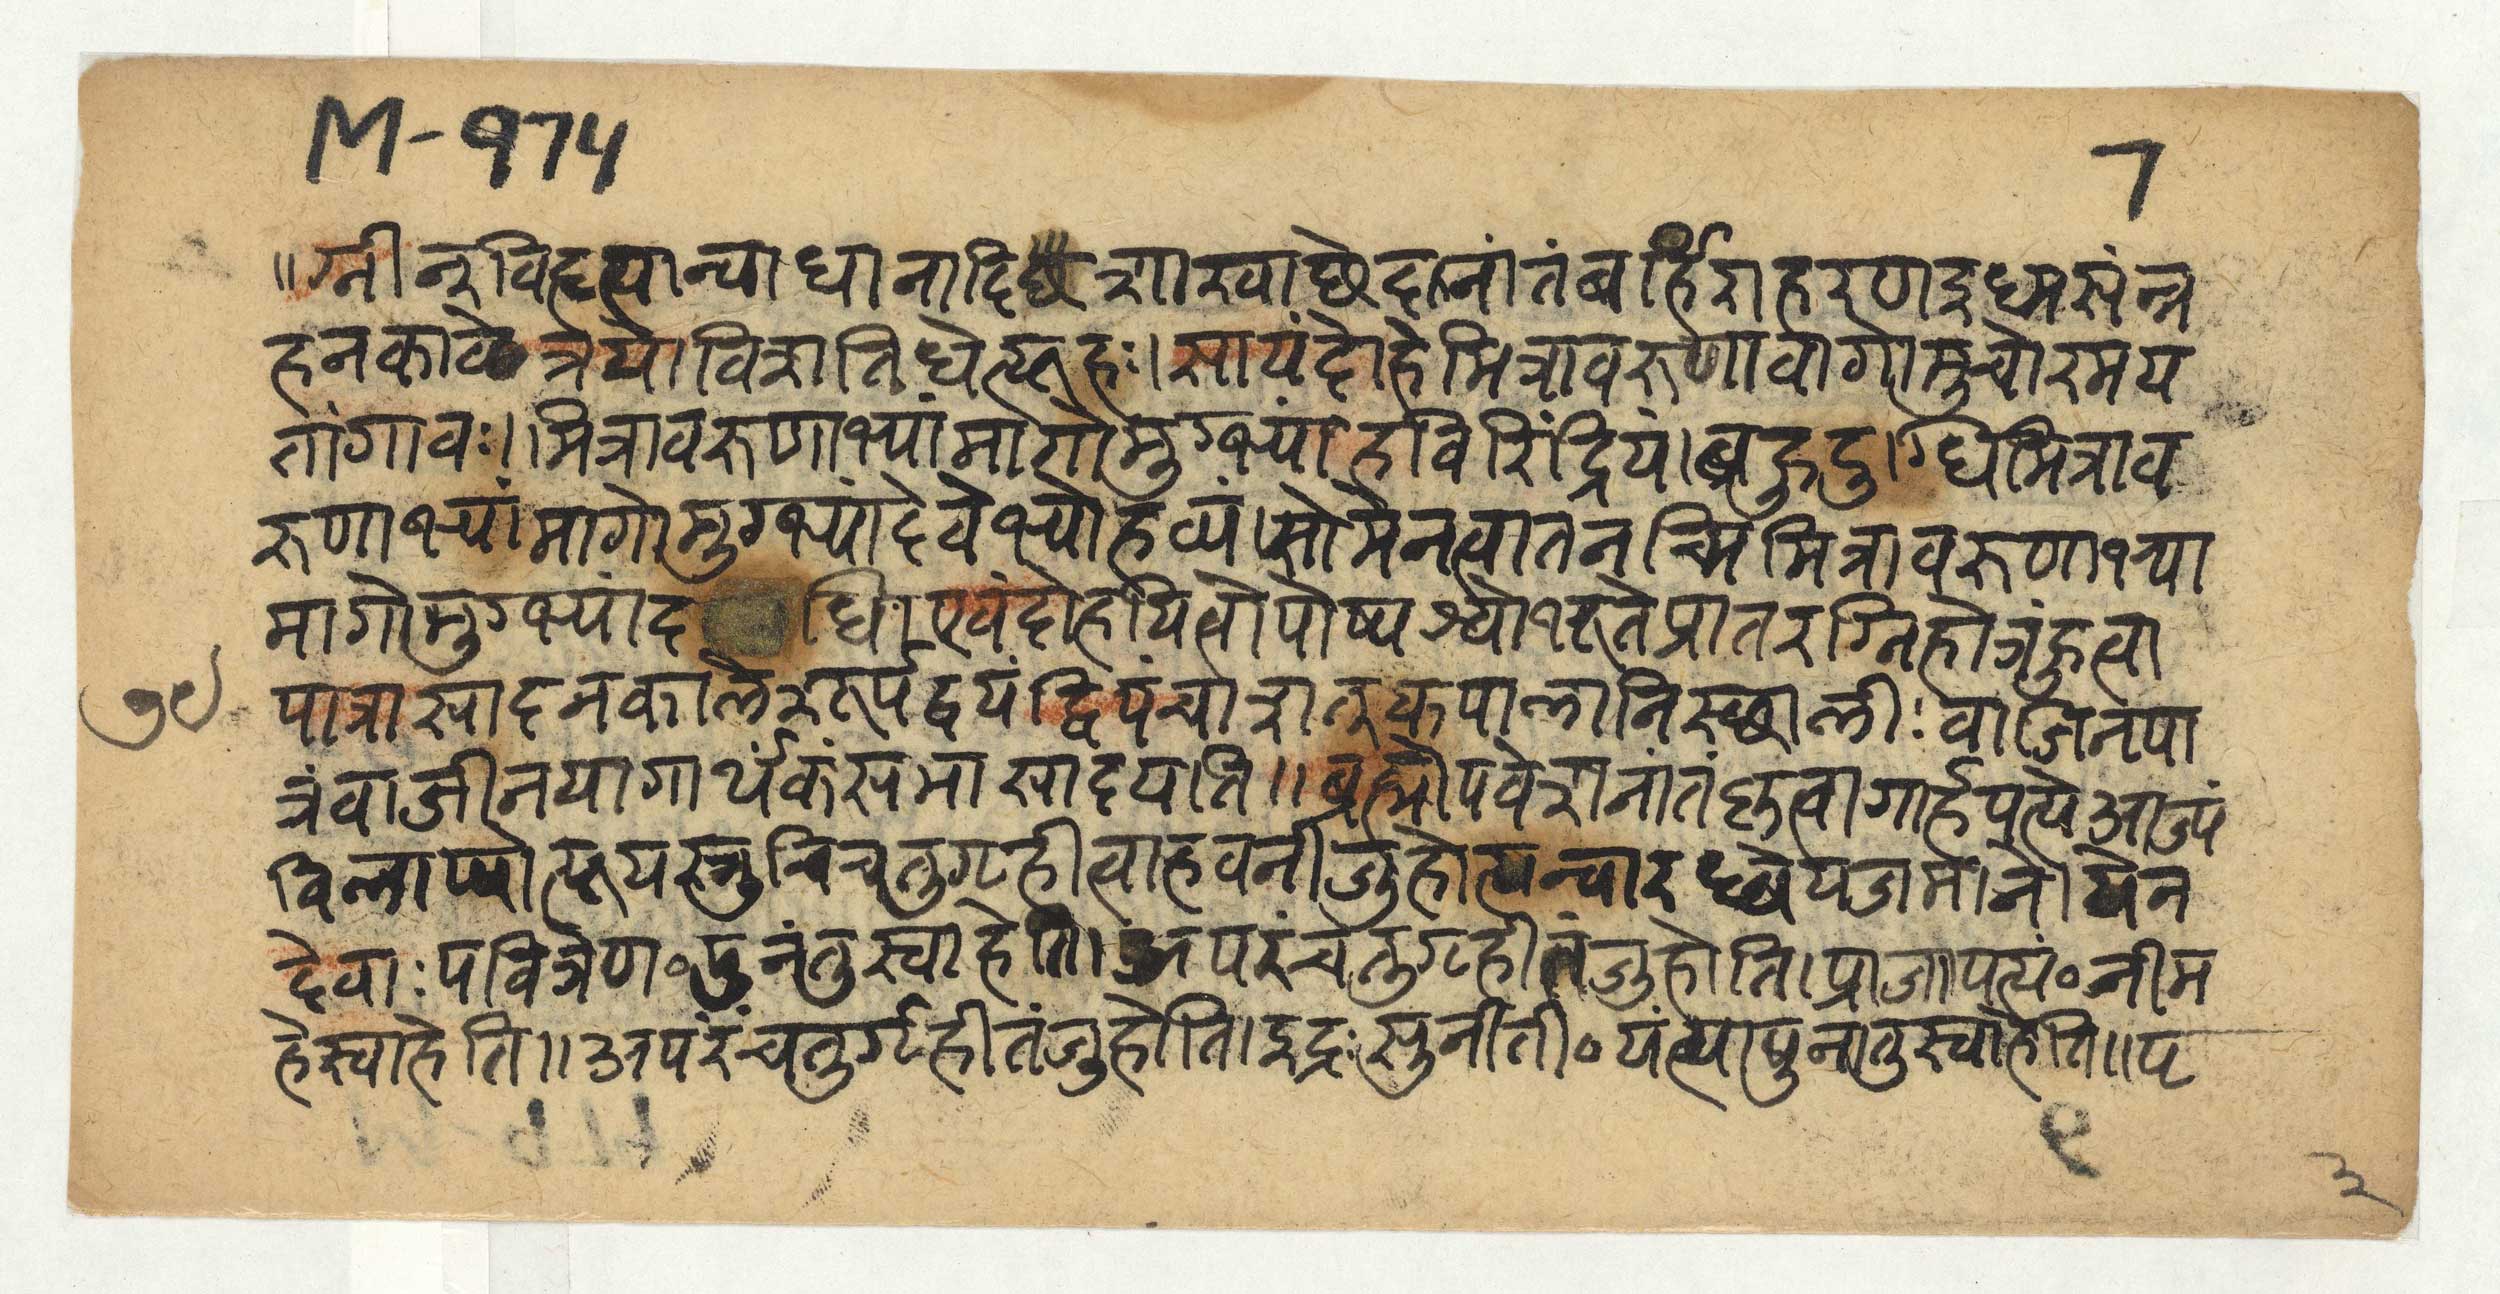 M-१७५
7
॥ग्नीन्रविहृत्यान्वाधानादिशाखाछेदनांतंबर्हिराहरणइध्मसंन्न
हनकाले त्रयोविंशतिधेत्यूहः।सायंदोहेमित्रावरुणावागोमुचोरमय
तांगावः।।मित्रावरुणाभ्यांमागोमुग्भ्यांहविरिंद्रियं।बहुदुग्धिमित्राव
रुणाभ्यांमागोमुग्भ्यांदेवेभ्योहव्यं।सोमेनत्वातनच्मिमित्रावरुणाभ्या
मागोमुग्भ्यांद धि।एवंदोहयित्वोपोष्यश्वोभूतेप्रातरग्निहोत्रंहुत्वा
पात्रासादनकालेशूर्पद्वयंद्विपंचाशत्कपालानिस्थाली:वाजिनपा
त्रंवाजीनयागार्थंकंसमासादयति॥ब्रह्मोपवेशनांतंकृत्वागार्हपत्येआज्यं
विलाप्योत्पूयस्रुचिचतुगृहीत्वाहवनीजुहोत्यन्वारब्धेयजमाने।येन
देवाःपवित्रेण॰पुनंतुस्वाहेति।अपरंचतुगृहीतंजुहोति।प्राजापत्यं॰नीम
हेस्वाहेति॥अपरंचतुर्गृहीतंजुहोति।इंद्रःसुनीती॰यंत्यापुनातुस्वाहेति॥प